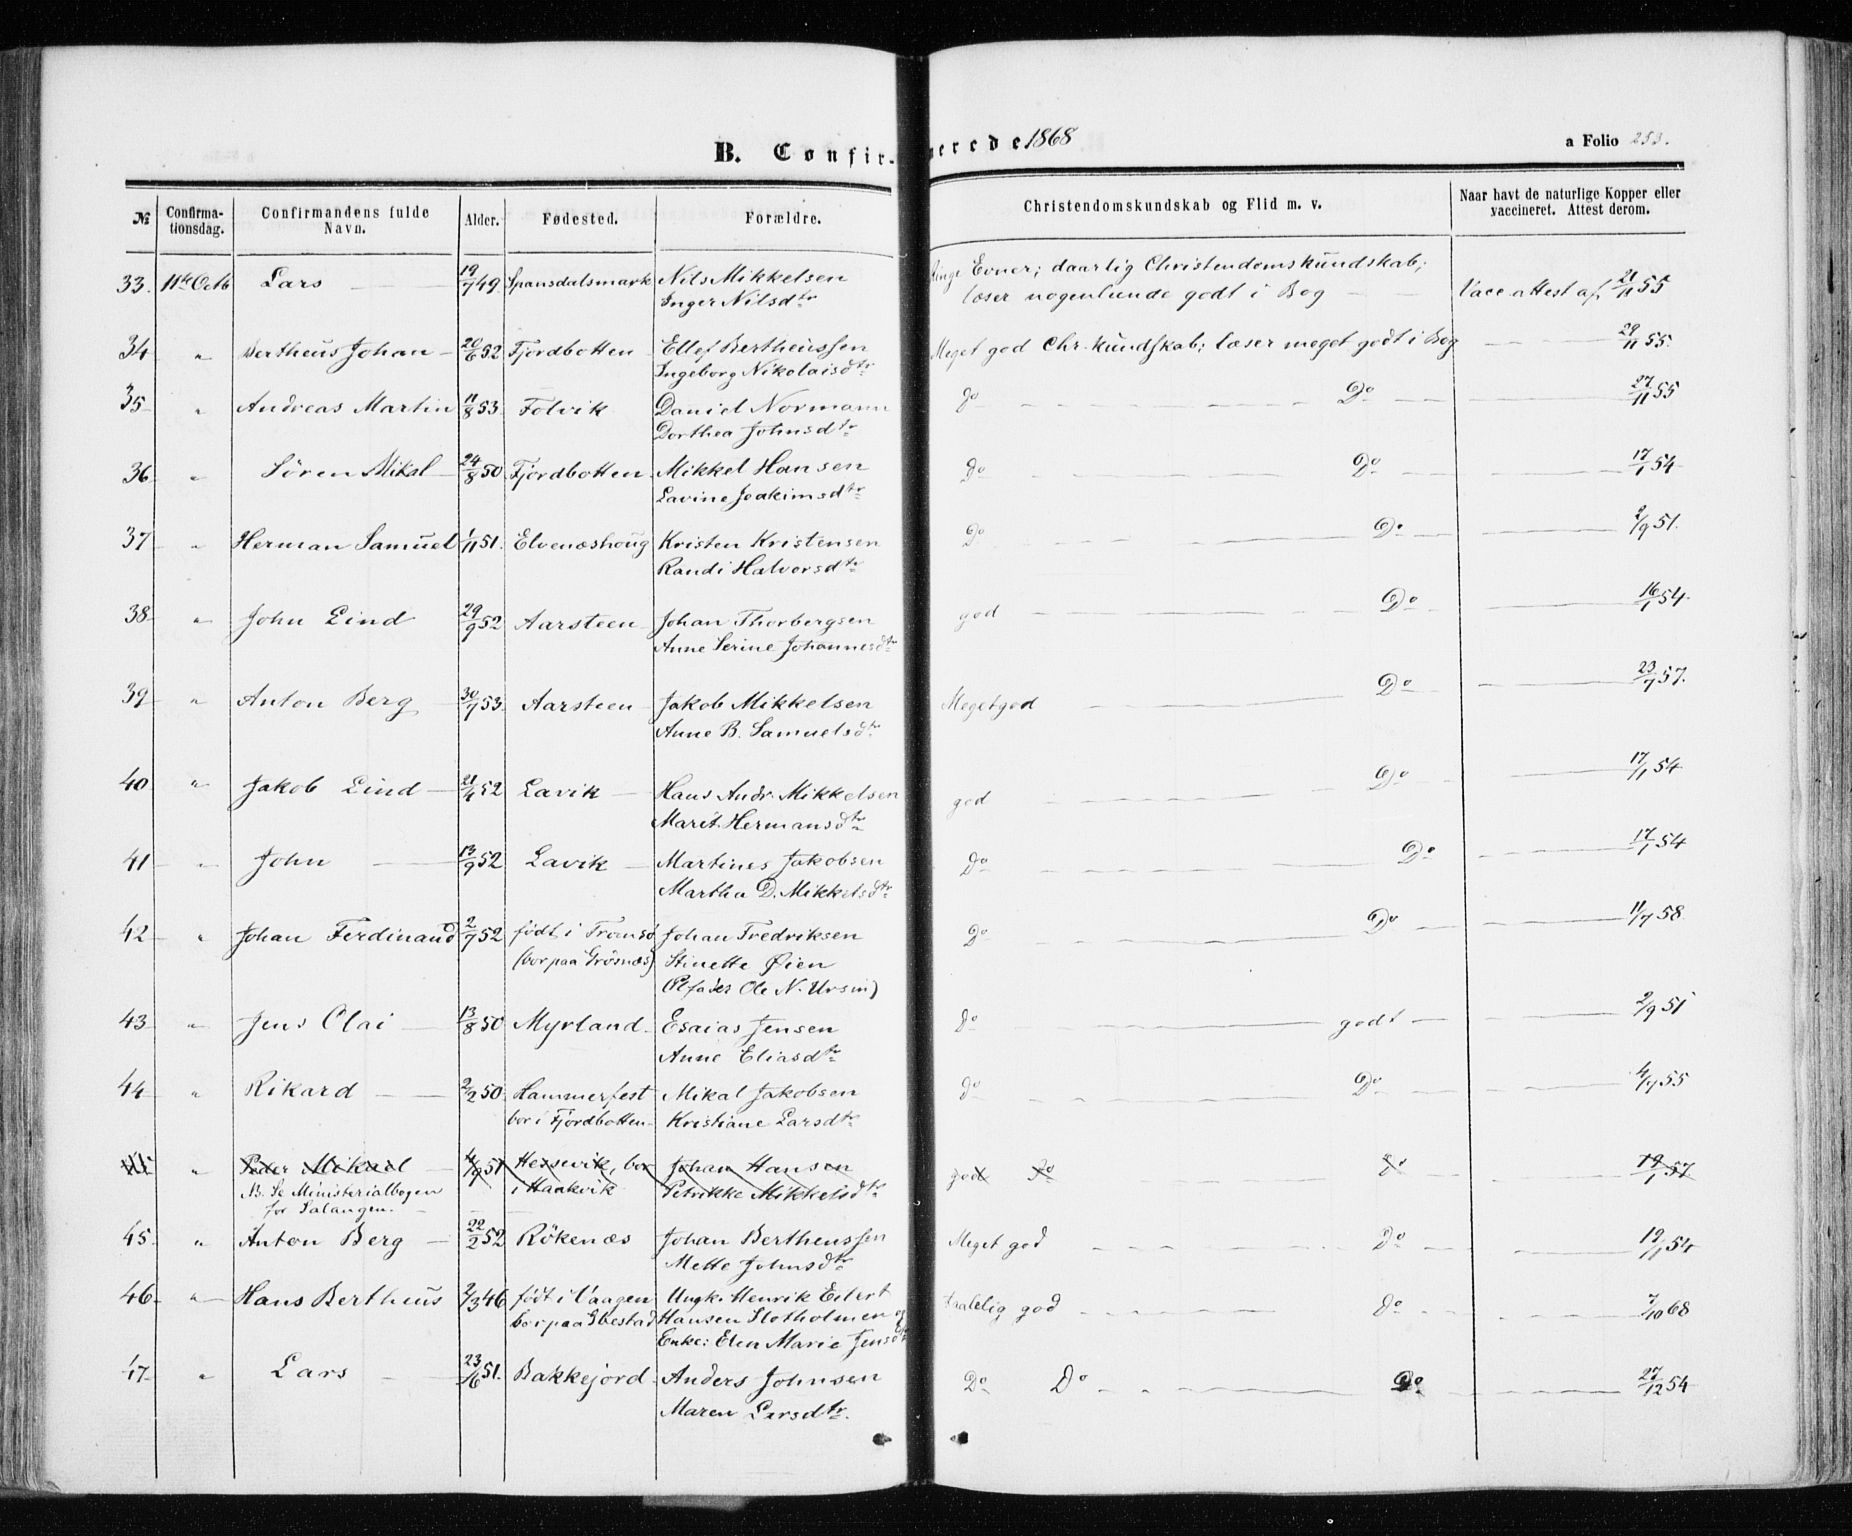 B. Confir-merede 1868
a Folio 253.
№ Confirma-tionsdag. Confirmandens fulde Navn. Alder. Fødested. Forældre. Christendomskundskab og Flid m. v. Naar havt de naturlige Kopper eller vaccineret. Attest derom.
33. 11te Octb Lars — 19/7 49. Spansdalsmark Nils Mikkelsen Ringe Evner; daarlig Christendomskundskab;
Inger Nilsdtr læser nogenlunde godt i Bog — Vacc. attest af 21/11 55
34 " Bertheus Johan 20/6 52 Fjordbotten Ellef Bertheussen Meget god Chr. kundskab; læser meget godt i Bog — 29/11 55.
Ingeborg Nikolaisdtr
35 " Andreas Martin 11/8 53. Folvik Daniel Normann do — Do — 27/11 55
Dorthea Johnsdtr
36 " Sören Mikal 24/8 50 Fjordbotten Mikkel Hansen Do — Do — 17/1 54
Lavine Joakimsdtr
37 " Herman Samuel 1/11 51. Elvenæshoug Kristen Kristensen Do — Do — 2/9 51.
Randi Halvorsdtr
38 " John Lind 29/9 52 Aarsteen Johan Thorbergsen god — Do — 16/1 54.
Anne Serine Johannesdtr
39 " Anton Berg 30/7 53. Aarsteen Jakob Mikkelsen Meget god — Do — 23/7 57.
Anne B. Samuelsdtr
40 " Jakob Lind 21/4 52 Lavik Hans Andr. Mikkelsen god — Do — 17/1 54
Marit Hermansdtr
41 " John — 13/9 52 Lavik Martines Jakobsen Do — Do — 17/1 54
Martha D. Mikkelsdtr
42 " Johan Ferdinand 2/7 52 födt i Tromsö Johan Fredriksen Do — Do — 11/7 58
(bor paa Grösnæs) Stinette Øien
(Plfader Ole N. Ursin)
43 " Jens Olai 13/8 50 Myrland Esaias Jensen do — godt — 2/9 51
Anne Eliasdtr
44 " Rikard — 2/2 50. Hammerfest Mikal Jakobsen do — Do — 4/7 55
bor i Fjordbotten Kristiane Larsdtr
" Peder Mikael 4/9 51 Hessevik, bor Johan Hansen god Do Do 19/1 57
N. Se Ministerialbogen i Haakvik Petrikke Mikkelsdtr
for Salangen.
45 " Anton Berg 22/2 52 Rökenæs Johan Bertheussen Meget god — Do — 19/1 54
Mette Johnsdtr
46 " Hans Bertheus 2/3 46 födt i Vaagen Ungk. Henrik Edert taalelig god — do — 7/10 68
bor paa Ibestad Hansen Slotholmen og
Enke: Elen Marie Jensdtr
47 " Lars — 23/6 51. Bakkejord Anders Johnsen Do Do — Do — 27/12 54
Maren Larsdtr.